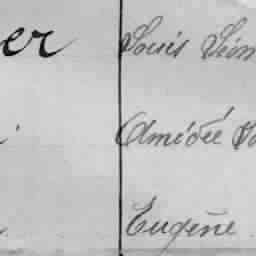 er Louis Léon
Amédée
Eugène